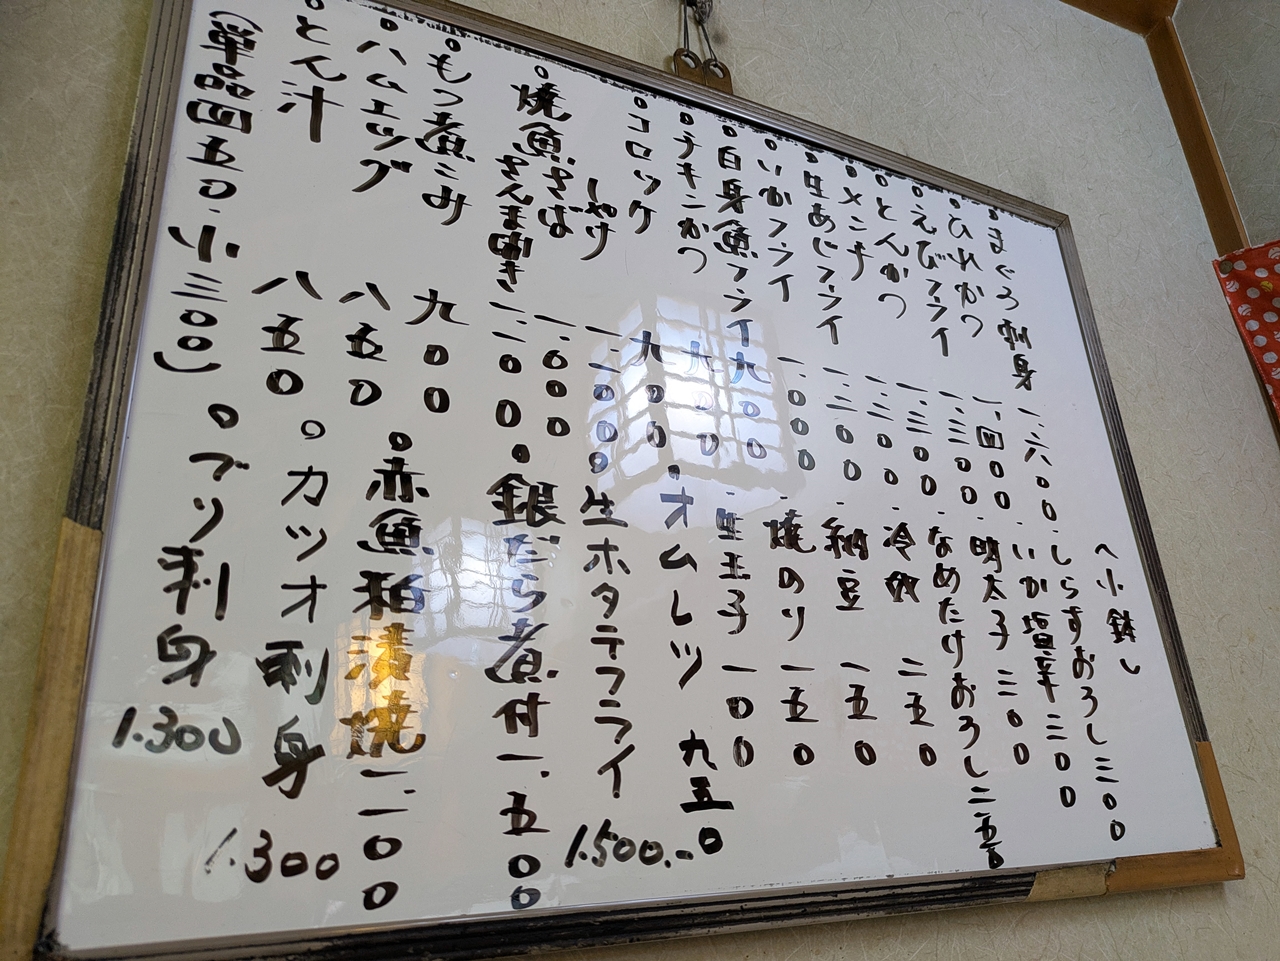 。まぐろ刺身 一.六〇〇
。ひれかつ 一.四〇〇
。えびフライ 一.三〇〇
。とんかつ 一.三〇〇
。メンチ 一.二〇〇
。生あじフライ 一.二〇〇
。いかフライ 一.〇〇〇
。白身魚フライ 九〇〇
。チキンかつ 九〇〇
。コロッケ 九〇〇
しゃけ 一.一〇〇
。焼魚 さば 一.〇〇〇
さんま開き 一.一〇〇
。もつ煮こみ 九〇〇
。ハムエッグ 八五〇
。とん汁 八五〇
(単品四五〇.小三〇〇)
〈小鉢〉
・しらすおろし 三〇〇
・いか塩辛 三〇〇
・明太子 三〇〇
・なめたけおろし 二五〇
・冷奴 二五〇
・納豆 一五〇
・焼のり 一五〇
・生玉子 一〇〇
・オムレツ 九五〇
。生ホタテフライ 1.500.-
・銀だら煮付 一.五〇〇
。赤魚粕漬焼 一.一〇〇
。カツオ刺身 1.300
。ブリ刺身 1.300